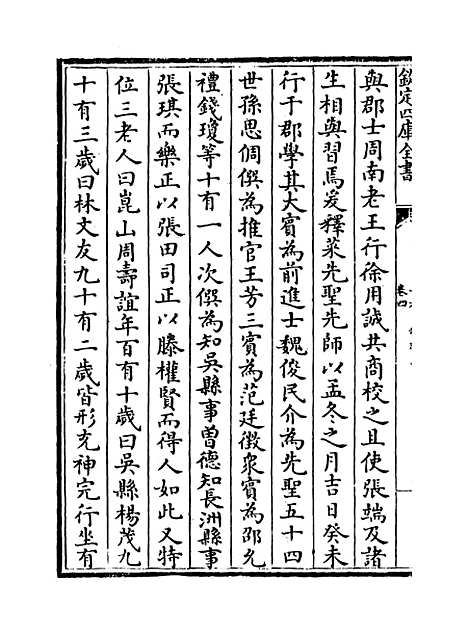 欽定四庫全書
卷四
與郡士周南老王行徐用誠共商校之且使張端及諸
生相與習焉爰釋菜先聖先師以孟冬之月吉日癸未
行于郡學其大賓為前進士魏俊民介為先聖五十四
世孫思倜僎為推官王芳三賓為范廷徵衆賓為邵允
禮錢瓊等十有一人次僎為知吳縣事曽德知長洲縣事
張琪而樂正以張田司正以滕權賢而得人如此又特
位三老人曰崑山周壽誼年百有十歲曰吳縣楊茂九
十有三歲曰林文友九十有二歲皆形充神完行坐有